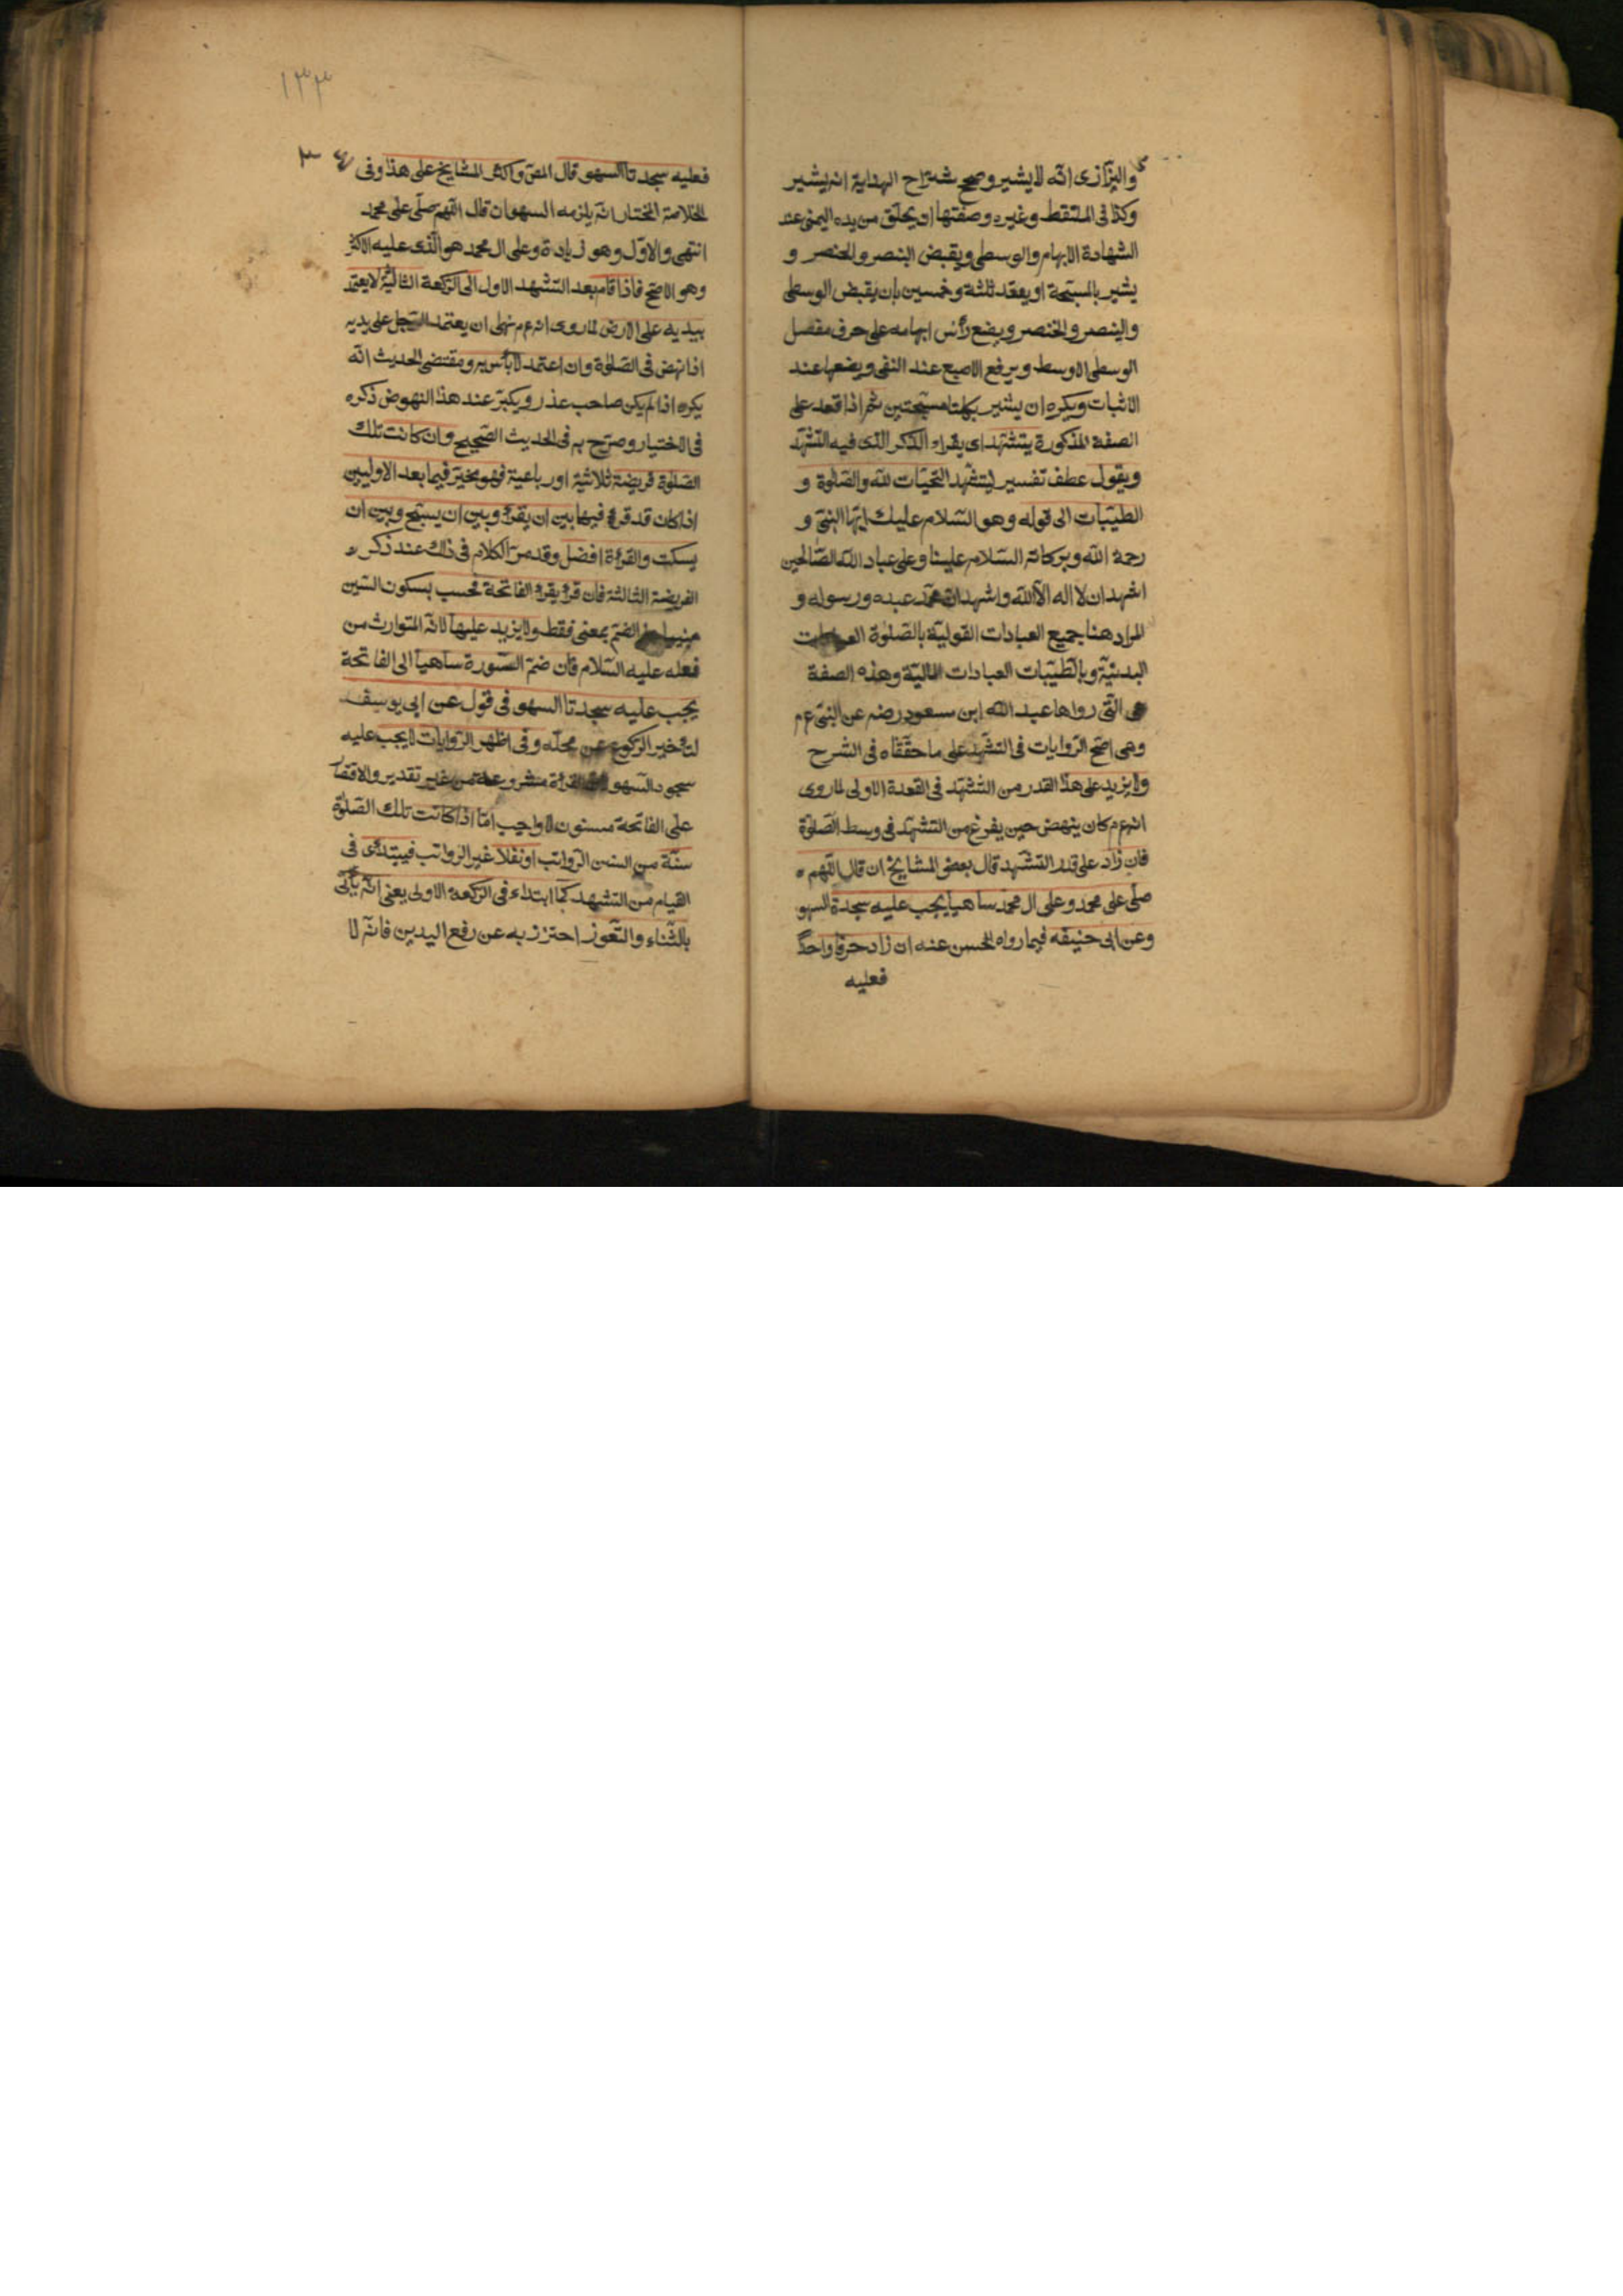 والبزازى انه لا يشير وصحح شراح الهداية انه يشير
وكذا فى الملتقط وغيره وصفتها ان يحلق من يده اليمنى عند
الشهادة الابهام والوسطى ويقبض البنصر والخنصر و
يشير بالمسبحة او يعقد ثلثة وخمسين بان يقبض الوسطى
والبنصر والخنصر ويضع رأس ابهامه على حرف مفصل
الوسطى الاوسط ويرفع الاصبع عند النفى ويضعها عند
الاثبات ويكره ان يشير بكلتا مسبحتين ثم اذا قعد على
الصفة المذكورة يتشهد اى يقراء الذكر الذى فيه التشهد
ويقول عطف تفسير ليتشهد التحيات لله والصلوة و
الطيبات الى قوله وهو السلام عليك ايها النبى و
رحمة الله وبركاته السلام علينا وعلى عباد الله الصالحين
اشهد ان لا اله الا الله واشهد ان محمد عبده ورسوله و
المراد هنا جميع العبادات القولية بالصلوة العبادات
البدنية وبالطيبات العبادات المالية وهذه الصفة
هى التى رواها عبد الله ابن مسعود رضه عن النبى ع م
وهى اصح الروايات فى التشهد على ما حققناه فى الشرح
ولا يزيد على هذا القدر من التشهد فى القعدة الاولى لما روى
انه ع م كان ينهض حين يفرغ من التشهد فى وسط الصلوة
فان زاد على قدر التشهد قال بعض المشايخ ان قال اللهم
صلى على محمد وعلى ال محمد ساهيا يجب عليه سجدة السهو
وعن ابى حنيفه فيما رواه الحسن عنه ان زاد حرفا واحدا
فعليه
١٣٣
فعليه سجدتا السهو قال المص واكثر المشايخ على هذا وفى
الخلاصة المختار انه يلزمه السهو ان قال اللهم صلى على محمد
انتهى والاول وهو زيادة وعلى ال محمد هو الذى عليه الاكثر
وهو الاصح فاذا قام بعد التشهد الاول الى الركعة الثالثة لا يعتمد
بيديه على الارض لما روى انه ع م نهى ان يعتمد الرجل على يديه
اذا نهض فى الصلوة وان اعتمد لا بأس به ومقتضى الحديث انه
يكره اذا لم يكن صاحب عذر ويكبر عند هذا النهوض ذكره
فى الاختيار وصرح به فى الحديث الصحيح وان كانت تلك
الصلوة فريضة ثلاثية اورباعية فهو مخير فيما بعد الاوليين
اذا كان قد قرئ فيها بين ان يقرئ وبين ان يسبح وبين ان
يسكت والقرءة افضل وقد مر الكلام فى ذلك عند ذكر
الفريضة الثالثة فان قرئ يقرئ الفاتحة فحسب بسكون السين
الضم بمعنى فقط ولا يزيد عليها لانه المتوارث من
فعله عليه السلام فان ضم السورة ساهيا الى الفاتحة
يجب عليه سجدتا السهو فى قول عن ابى يوسف
لتأخير الركوع عن محله وفى اظهر الروايات لا يجب عليه
سجود السهو القرأة مشروعة من غير تقدير والاقتصار
على الفاتحة مسنون لا واجب اما اذا كانت تلك الصلوة
سنة من السنن الرواتب او نفلا غير الرواتب فيبتدئ فى
القيام من التشهد كما ابتداء فى الركعة الاولى يعنى انه يأتى
بالثناء والتعوز احترز به عن رفع اليدين فانه لا